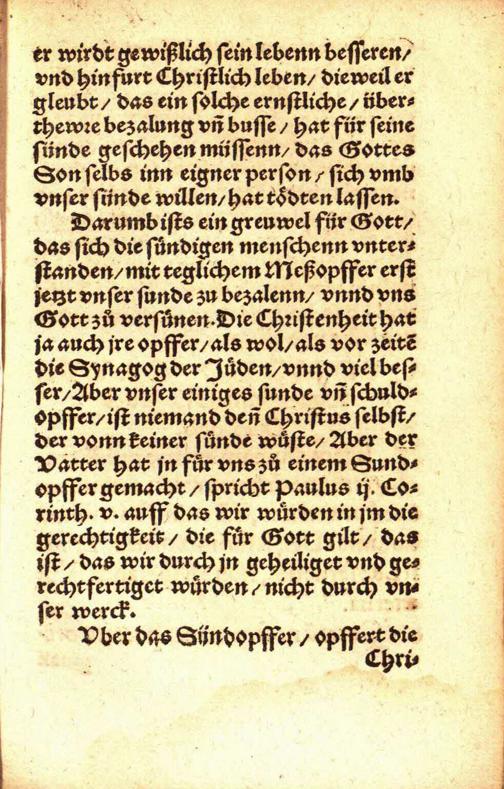 er wirdt gewißlich sein lebenn besseren/
vnd hinfurt Christlich leben/ dieweil er
gleubt/ das ein solche ernstliche/ über⸗
thewre bezalung vñ busse/ hat für seine
sünde geschehen müssenn/ das Gottes
Son selbs inn eigner person/ sich vmb
vnser sünde willen/ hat tödten lassen.
Darumb ists ein greuwel für Gott/
das sich die sündigen menschenn vnter⸗
standen/ mit teglichem Meßopffer erst
jetzt vnser sunde zu bezalenn/ vnnd vns
Gott zů versünen. Die Christenheit hat
ja auch jre opffer/ als wol/ als vor zeitẽ
die Synagog der Jüden/ vnnd viel bes⸗
ser/ Aber vnser einiges sunde vñ schuld⸗
opffer/ ist niemand deñ Christus selbst/
der vonn keiner sünde wůste/ Aber der
Vatter hat jn für vns zů einem Sund⸗
opffer gemacht/ spricht Paulus ij. Co⸗
rinth. v. auff das wir würden in jm die
gerechtigkeit/ die für Gott gilt/ das
ist/ das wir durch jn geheiliget vnd ge⸗
rechtfertiget würden/ nicht durch vn⸗
ser werck.
Vber das Sündopffer/ opffert die
Chri⸗